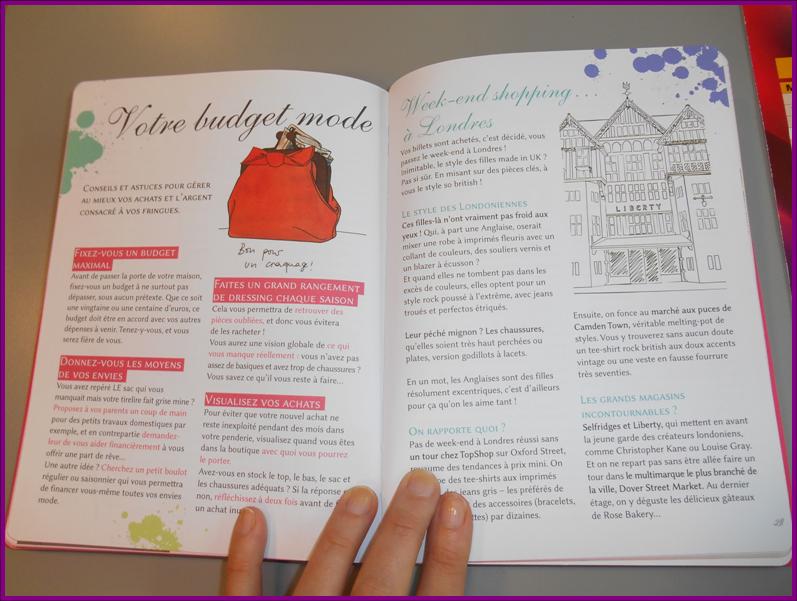 Votre budget mode
Conseils et astuces pour gérer
au mieux vos achats et l'argent
consacré à vos fringues.
Bon pour
un craquage!
Fixez-vous un budget
maximal
Avant de passer la porte de votre maison,
fixez-vous un budget à ne surtout pas
dépasser, sous aucun prétexte. Que ce soit
une vingtaine ou une centaine d'euros, ce
budget doit être en accord avec vos autres
dépenses à venir. Tenez-vous, et vous
serez fière de vous.
Donnez-vous les moyens
de vos envies
Vous avez repéré LE sac qui vous
manquait mais votre tirelire fait grise mine ?
Proposez à vos parents un coup de main
pour des petits travaux domestiques par
exemple, et en contrepartie demandez-
leur de vous aider financièrement à vous
offrir une part de rêve...
Une autre idée ? Cherchez un petit boulot
régulier ou saisonnier qui vous permettra
de financer vous-même toutes vos envies
mode.
Faites un grand rangement
de dressing chaque saison
Cela vous permettra de retrouver des
pièces oubliées, et donc vous évitera
de les racheter !
Vous aurez une vision globale de ce qui
vous manque réellement : vous n'avez pas
assez de basiques et avez trop de chaussures ?
Vous savez ce qu'il vous reste à faire...
Visualisez vos achats
Pour éviter que votre nouvel achat ne
reste inexploité pendant des mois dans
votre penderie, visualisez quand vous êtes
dans la boutique avec quoi vous pourrez
le porter.
Avez-vous en stock le top, le bas, le sac et
les chaussures adéquats ? Si la réponse
non, réfléchissez à deux fois avant de
un achat
Week-end shopping
à Londres
Vos billets sont achetés, c'est décidé, vous
passez le week-end à Londres !
Inimitable, le style des filles made in UK ?
Pas si sûr. En misant sur des pièces clés, à
vous le style so british !
Le style des Londoniennes
Ces filles-là n'ont vraiment pas froid aux
yeux ! Qui, à part une Anglaise, oserait
mixer une robe à imprimés fleuris avec un
collant de couleur, des souliers vernis et
un blazer à écusson ?
Et quand elles ne tombent pas dans les
excès de couleurs, elles optent pour un
style rock poussé à l'extrême, avec jeans
troués et perfectos étriqués.
Leur péché mignon ? Les chaussures,
qu'elles soient très haut perchées ou
plates, version godillots à lacets.
En un mot, les Anglaises sont des filles
résolument excentriques, c'est d'ailleurs
pour ça qu'on les aime tant !
On rapporte quoi ?
Pas de week-end à Londres réussi sans
un tour chez TopShop sur Oxford Street,
des tendances à prix mini. On
des tee-shirts aux imprimés
jeans gris – les préférés de
des accessoires (bracelets,
par dizaines.
LIBERTY
Ensuite, on fonce au marché aux puces de
Camden Town, véritable melting-pot de
styles. Vous y trouverez sans aucun doute
un tee-shirt rock british aux doux accents
vintage ou une veste en fausse fourrure
très seventies.
Les grands magasins
incontournables ?
Selfridges et Liberty, qui mettent en avant
la jeune garde des créateurs londoniens,
comme Christopher Kane ou Louise Gray.
Et on ne repart pas sans être allée faire un
tour dans le multimarque le plus branché de
la ville, Dover Street Market. Au dernier
étage, on y déguste les délicieux gâteaux
de Rose Bakery...